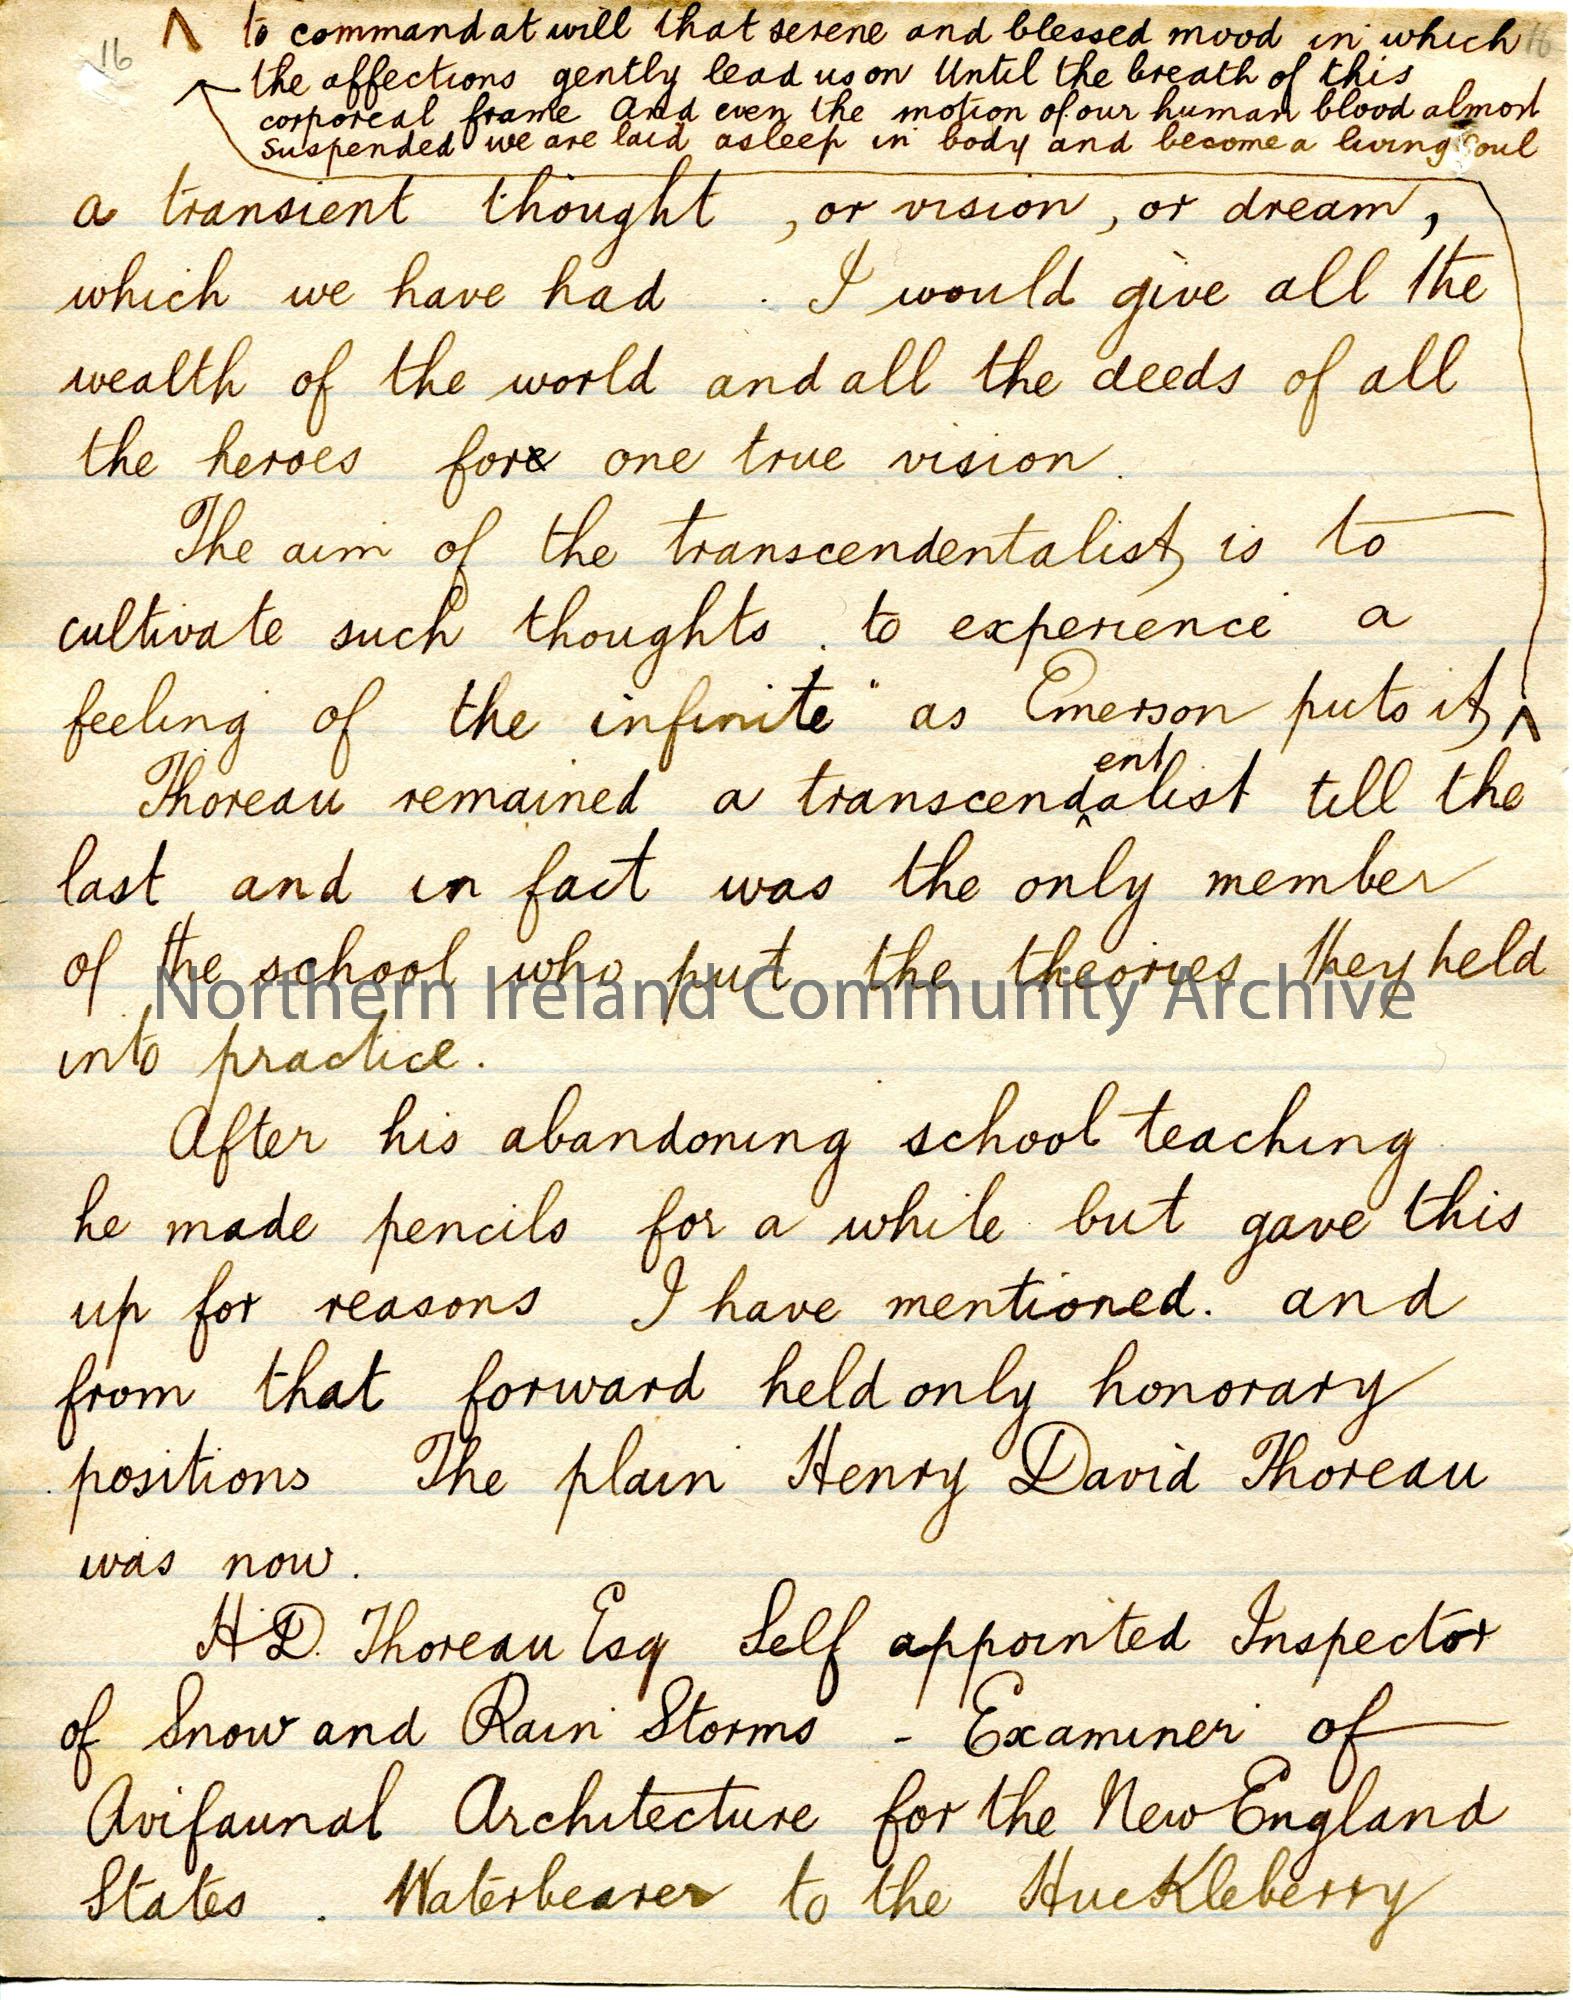 16
16
to command at will that serene and blessed mood in which
the affections gently lead us on Until the breath of this
corporeal frame And even the motion of our human blood almost
suspended we are laid asleep in body and become a living soul
a transient thought , or vision , or dream ,
which we have had . I would give all the
wealth of the world and all the deeds of all
the heroes for one true vision .
The aim of the transcendentalist, is to
cultivate such thoughts . to experience a
feeling of the infinite" as Emerson puts it, ^
Thoreau remained a transcendentalist till the
last and in fact was the only member
of the school who put the theories they held
Northern Ireland Community Archive
into practice .
After his abandoning school teaching
he made pencils for a while but gave this
up for reasons I have mentioned . and
from that forward held only honorary
positions The plain Henry David Thoreau
was now .
H.D. Thoreau Esq Self appointed Inspector
of Snow and Rain Storms - Examiner of
Avifaunal Architecture for the New England
States . Waterbearer to the Huckleberry